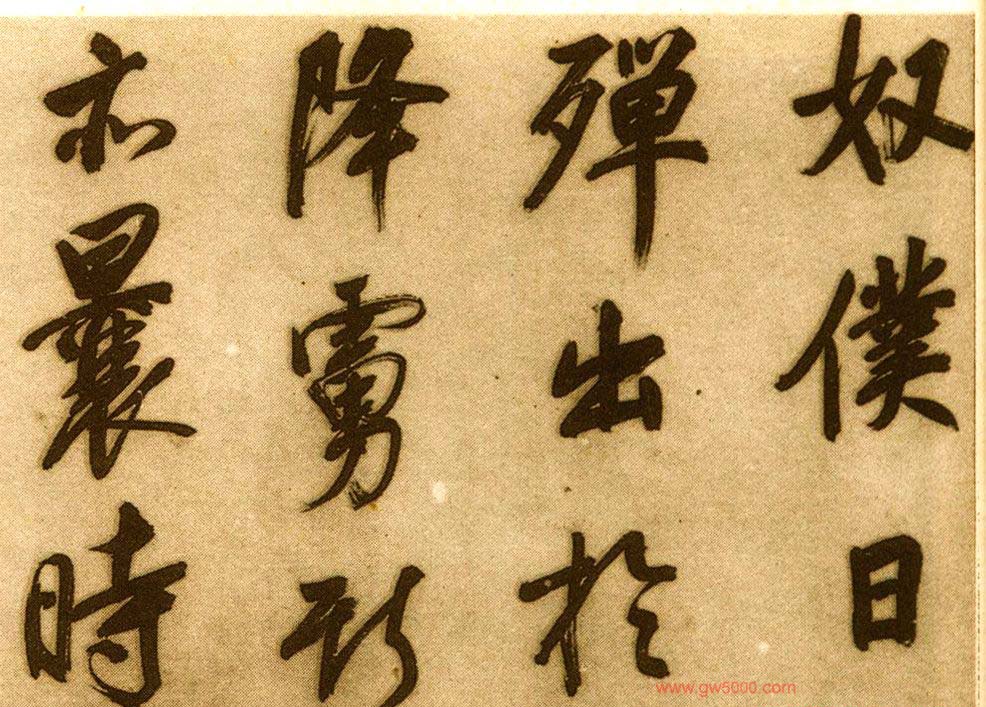 奴僕日
殫出於
降虜斯
亦曩時
www.gw5000.com